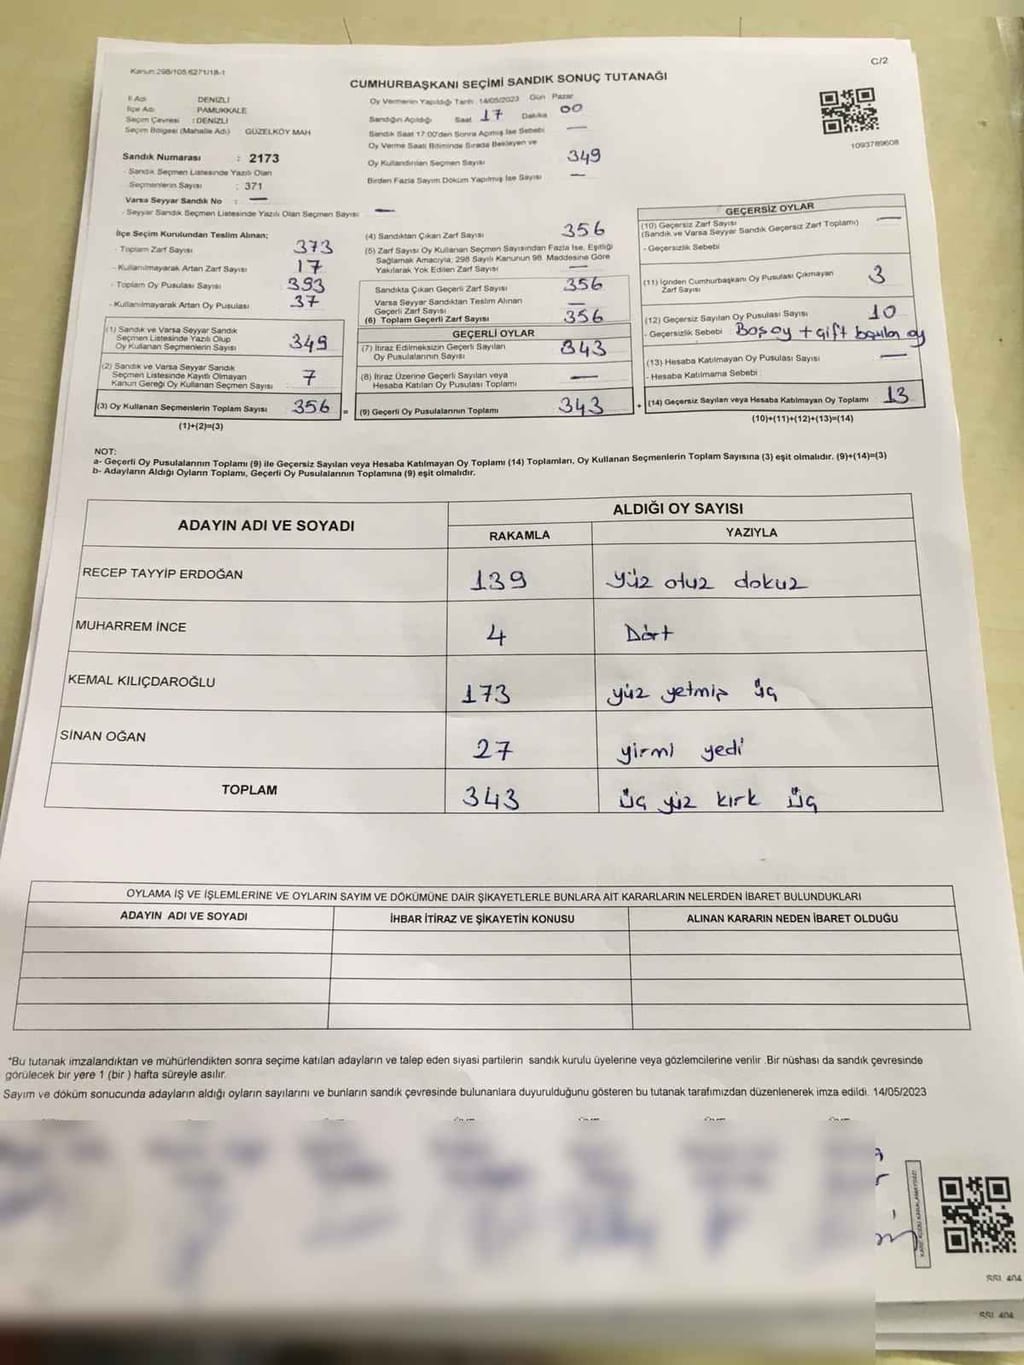 Kanun:298/105 6271/18-1
C/2
CUMHURBAŞKANI SEÇİMİ SANDIK SONUÇ TUTANAĞI
İl Adı DENİZLİ
İlçe Adı PAMUKKALE
Seçim Çevresi : DENİZLİ
Seçim Bölgesi (Mahalle Adı) GÜZELKÖY MAH
Sandık Numarası : 2173
- Sandık Seçmen Listesinde Yazılı Olan
Seçmenlerin Sayısı : 371
Varsa Seyyar Sandık No : —
- Seyyar Sandık Seçmen Listesinde Yazılı Olan Seçmen Sayısı —
Oy Vermenin Yapıldığı Tarih 14/05/2023 Gün Pazar
Sandığın Açıldığı Saat 17 Dakika 00
Sandık Saat 17:00'den Sonra Açılmış İse Sebebi —
Oy Verme Saati Bitiminde Sırada Bekleyen ve
Oy Kullandırılan Seçmen Sayısı 349
Birden Fazla Sayım Döküm Yapılmış İse Sayısı —
1093789608
İlçe Seçim Kurulundan Teslim Alınan;
- Toplam Zarf Sayısı 373
- Kullanılmayarak Artan Zarf Sayısı 17
- Toplam Oy Pusulası Sayısı 393
- Kullanılmayarak Artan Oy Pusulası 37
(1) Sandık ve Varsa Seyyar Sandık
Seçmen Listesinde Yazılı Olup
Oy Kullanan Seçmenlerin Sayısı 349
(2) Sandık ve Varsa Seyyar Sandık
Seçmen Listesinde Kayıtlı Olmayan
Kanun Gereği Oy Kullanan Seçmen Sayısı 7
(3) Oy Kullanan Seçmenlerin Toplam Sayısı 356 =
(1)+(2)=(3)
(4) Sandıktan Çıkan Zarf Sayısı 356
(5) Zarf Sayısı Oy Kullanan Seçmen Sayısından Fazla İse, Eşitliği
Sağlamak Amacıyla, 298 Sayılı Kanunun 98. Maddesine Göre
Yakılarak Yok Edilen Zarf Sayısı —
Sandıkta Çıkan Geçerli Zarf Sayısı 356
Varsa Seyyar Sandıktan Teslim Alınan
Geçerli Zarf Sayısı —
(6) Toplam Geçerli Zarf Sayısı 356
GEÇERLİ OYLAR
(7) İtiraz Edilmeksizin Geçerli Sayılan
Oy Pusulalarının Sayısı 343
(8) İtiraz Üzerine Geçerli Sayılan veya
Hesaba Katılan Oy Pusulası Toplamı —
(9) Geçerli Oy Pusulalarının Toplamı 343 +
GEÇERSİZ OYLAR
(10) Geçersiz Zarf Sayısı
(Sandık ve Varsa Seyyar Sandık Geçersiz Zarf Toplamı) —
- Geçersizlik Sebebi
(11) İçinden Cumhurbaşkanı Oy Pusulası Çıkmayan
Zarf Sayısı 3
(12) Geçersiz Sayılan Oy Pusulası Sayısı 10
- Geçersizlik Sebebi Boş oy + çift basılan oy
(13) Hesaba Katılmayan Oy Pusulası Sayısı —
- Hesaba Katılmama Sebebi
(14) Geçersiz Sayılan veya Hesaba Katılmayan Oy Toplamı 13
(10)+(11)+(12)+(13)=(14)
NOT:
a- Geçerli Oy Pusulalarının Toplamı (9) ile Geçersiz Sayılan veya Hesaba Katılmayan Oy Toplamı (14) Toplamları, Oy Kullanan Seçmenlerin Toplam Sayısına (3) eşit olmalıdır. (9)+(14)=(3)
b- Adayların Aldığı Oyların Toplamı, Geçerli Oy Pusulalarının Toplamına (9) eşit olmalıdır.
ADAYIN ADI VE SOYADI ALDIĞI OY SAYISI
RAKAMLA YAZIYLA
RECEP TAYYİP ERDOĞAN 139 yüz otuz dokuz
MUHARREM İNCE 4 Dört
KEMAL KILIÇDAROĞLU 173 yüz yetmiş üç
SİNAN OĞAN 27 yirmi yedi
TOPLAM 343 üç yüz kırk üç
OYLAMA İŞ VE İŞLEMLERİNE VE OYLARIN SAYIM VE DÖKÜMÜNE DAİR ŞİKAYETLERLE BUNLARA AİT KARARLARIN NELERDEN İBARET BULUNDUKLARI
ADAYIN ADI VE SOYADI İHBAR İTİRAZ VE ŞİKAYETİN KONUSU ALINAN KARARIN NEDEN İBARET OLDUĞU
*Bu tutanak imzalandıktan ve mühürlendikten sonra seçime katılan adayların ve talep eden siyasi partilerin sandık kurulu üyelerine veya gözlemcilerine verilir .Bir nüshası da sandık çevresinde
görülecek bir yere 1 (bir ) hafta süreyle asılır.
Sayım ve döküm sonucunda adayların aldığı oyların sayılarını ve bunların sandık çevresinde bulunanlara duyurulduğunu gösteren bu tutanak tarafımızdan düzenlenerek imza edildi. 14/05/2023
KARE KODU KARALAMAYINIZ!
SSI. 404
SSI. 404